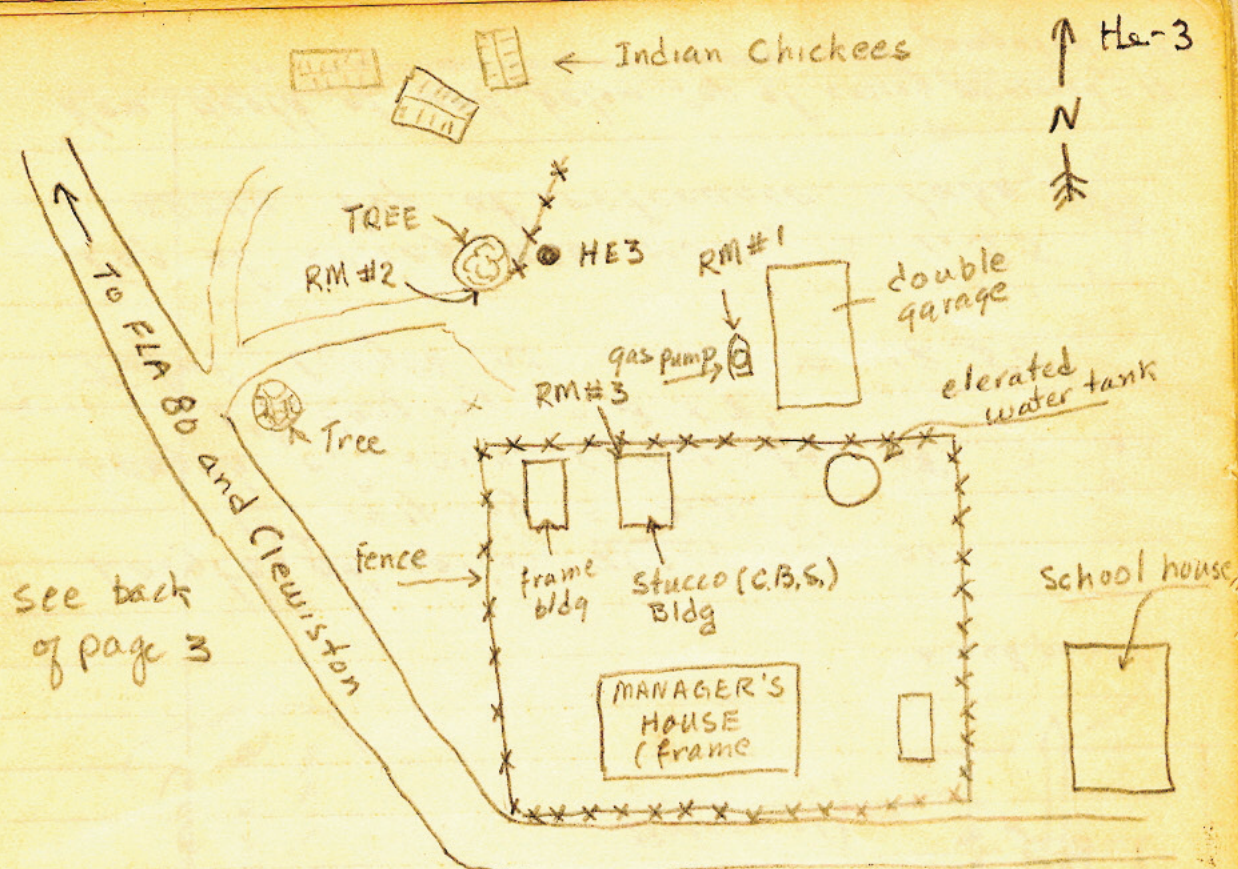 Indian Chickees
He-3
N
TREE
HE3
RM #2
RM #1
double
garage
gas pump
RM #3
elerated
water tank
Tree
To FLA 80 and Clewiston
Fence
frame
bldg
Stucco (C.B.S.)
Bldg
School house
See back
of page 3
MANAGER'S
HOUSE
(frame